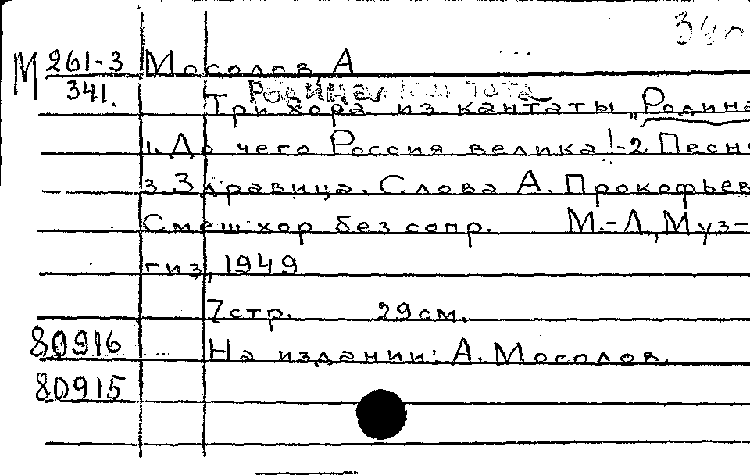 340
М 261-3 Мосолов, А
341.
Родина. Кантата
Три хора из кантаты „Родина
1. До чего Россия велика!-2. Песня
3. Здравица. Слова А. Прокофьев
Смеш. хор без сопр. М.-Л., Муз-
гиз, 1949
7 стр. 29 см.
80916 На издании: А. Мосолов.
80915